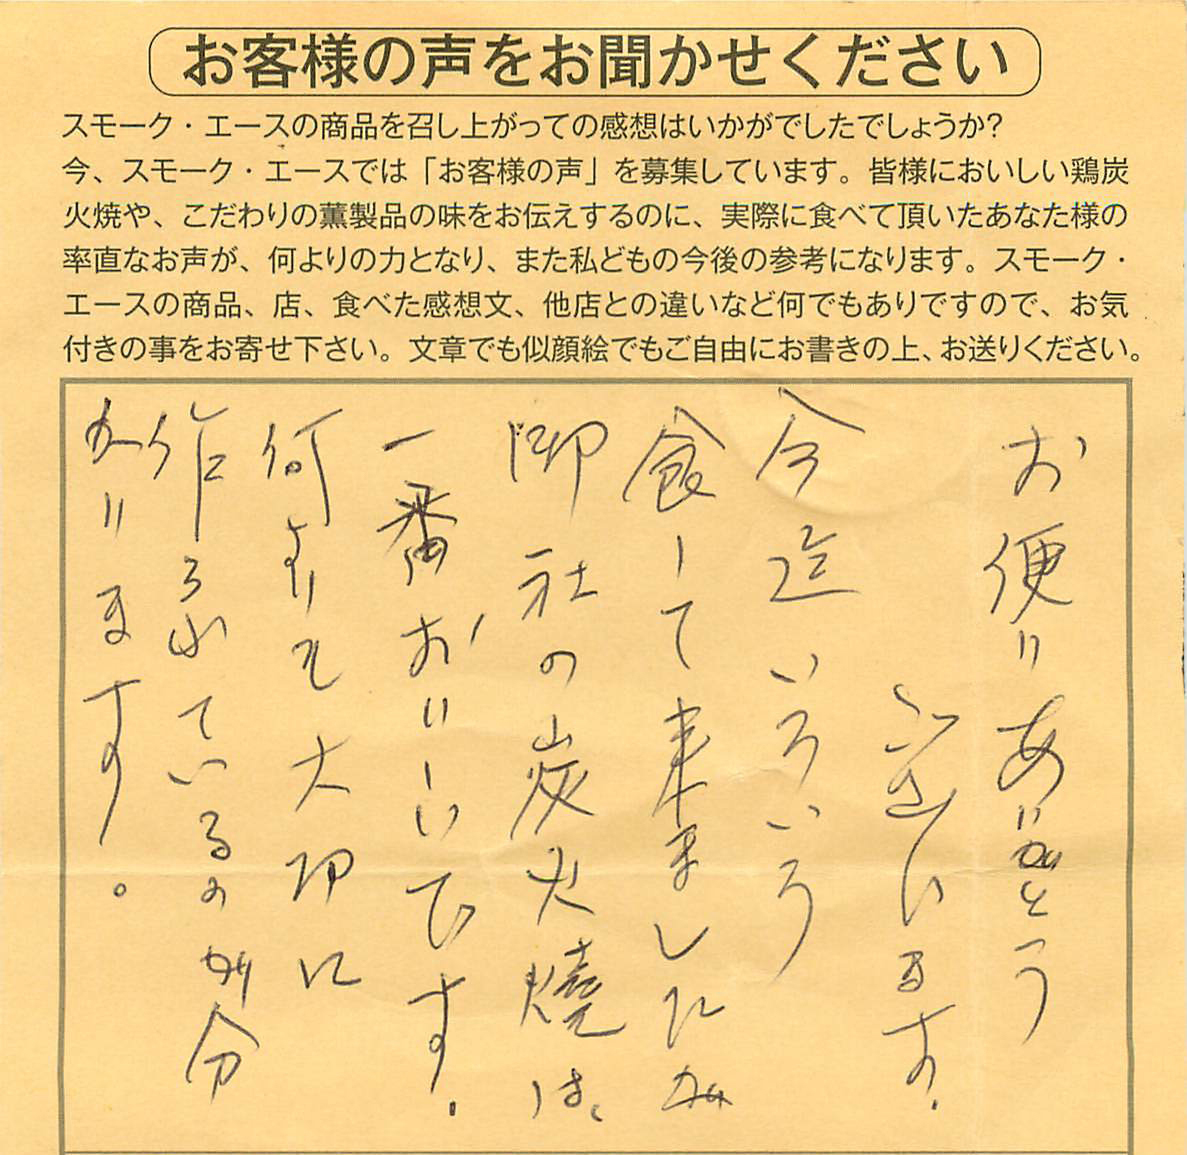 お客様の声をお聞かせください
スモーク・エースの商品を召し上がっての感想はいかがでしたでしょうか?
今、スモーク・エースでは「お客様の声」を募集しています。皆様においしい鶏炭
火焼や、こだわりの薫製品の味をお伝えするのに、実際に食べて頂いたあなた様の
率直なお声が、何よりの力となり、また私どもの今後の参考になります。スモーク・
エースの商品、店、食べた感想文、他店との違いなど何でもありですので、お気
付きの事をお寄せ下さい。文章でも似顔絵でもご自由にお書きの上、お送りください。
お便りありがとう
ございます。
今迄いろいろ
食して来ましたが
御社の炭火焼は、
一番おいしいです。
何よりも大切に
作られているのが分
かります。